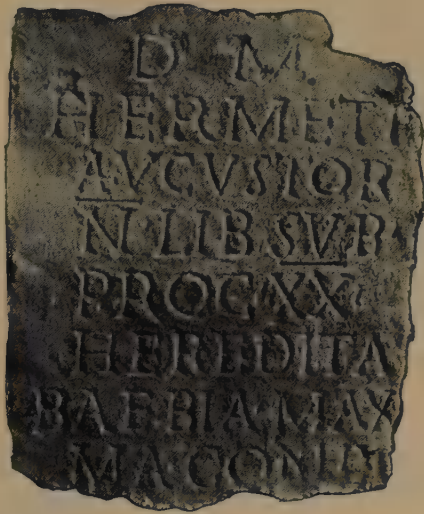 D M
HERMETI
AVGVSTOR
N LIB SVB
PROC XX
HEREDITA
BAEBIA MAX
MA CONIV